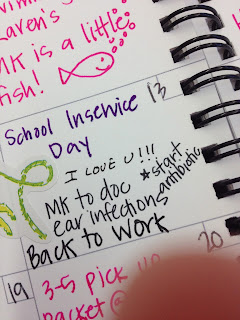 Karen's
MK is a little
fish!
13
School Inservice
Day
I LOVE U!!!
MK to doc *start
ear infections antibiotic
Back to Work
19
20
3-5 pick up
packet @